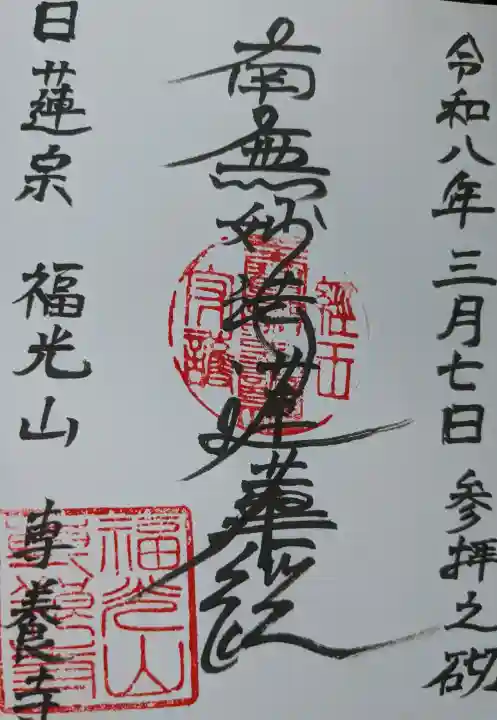 令和八年三月七日 参拝之砌
南無妙法蓮華経
日蓮宗 福光山 専養寺
福光山
経王
守護